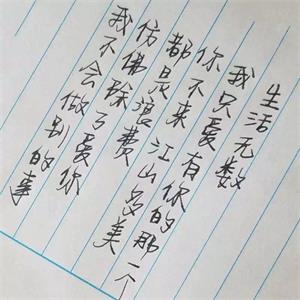 生活无数
我只爱有你的那一个
你不来 江山多美
都是浪费
仿佛除了爱你
我不会做别的事